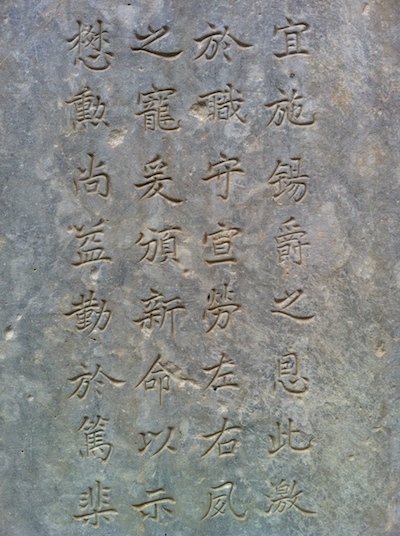 宜施錫爵之恩此激
於職守宣勞左右夙
之寵爰頒新命以示
懋勳尚益勤於篤棐